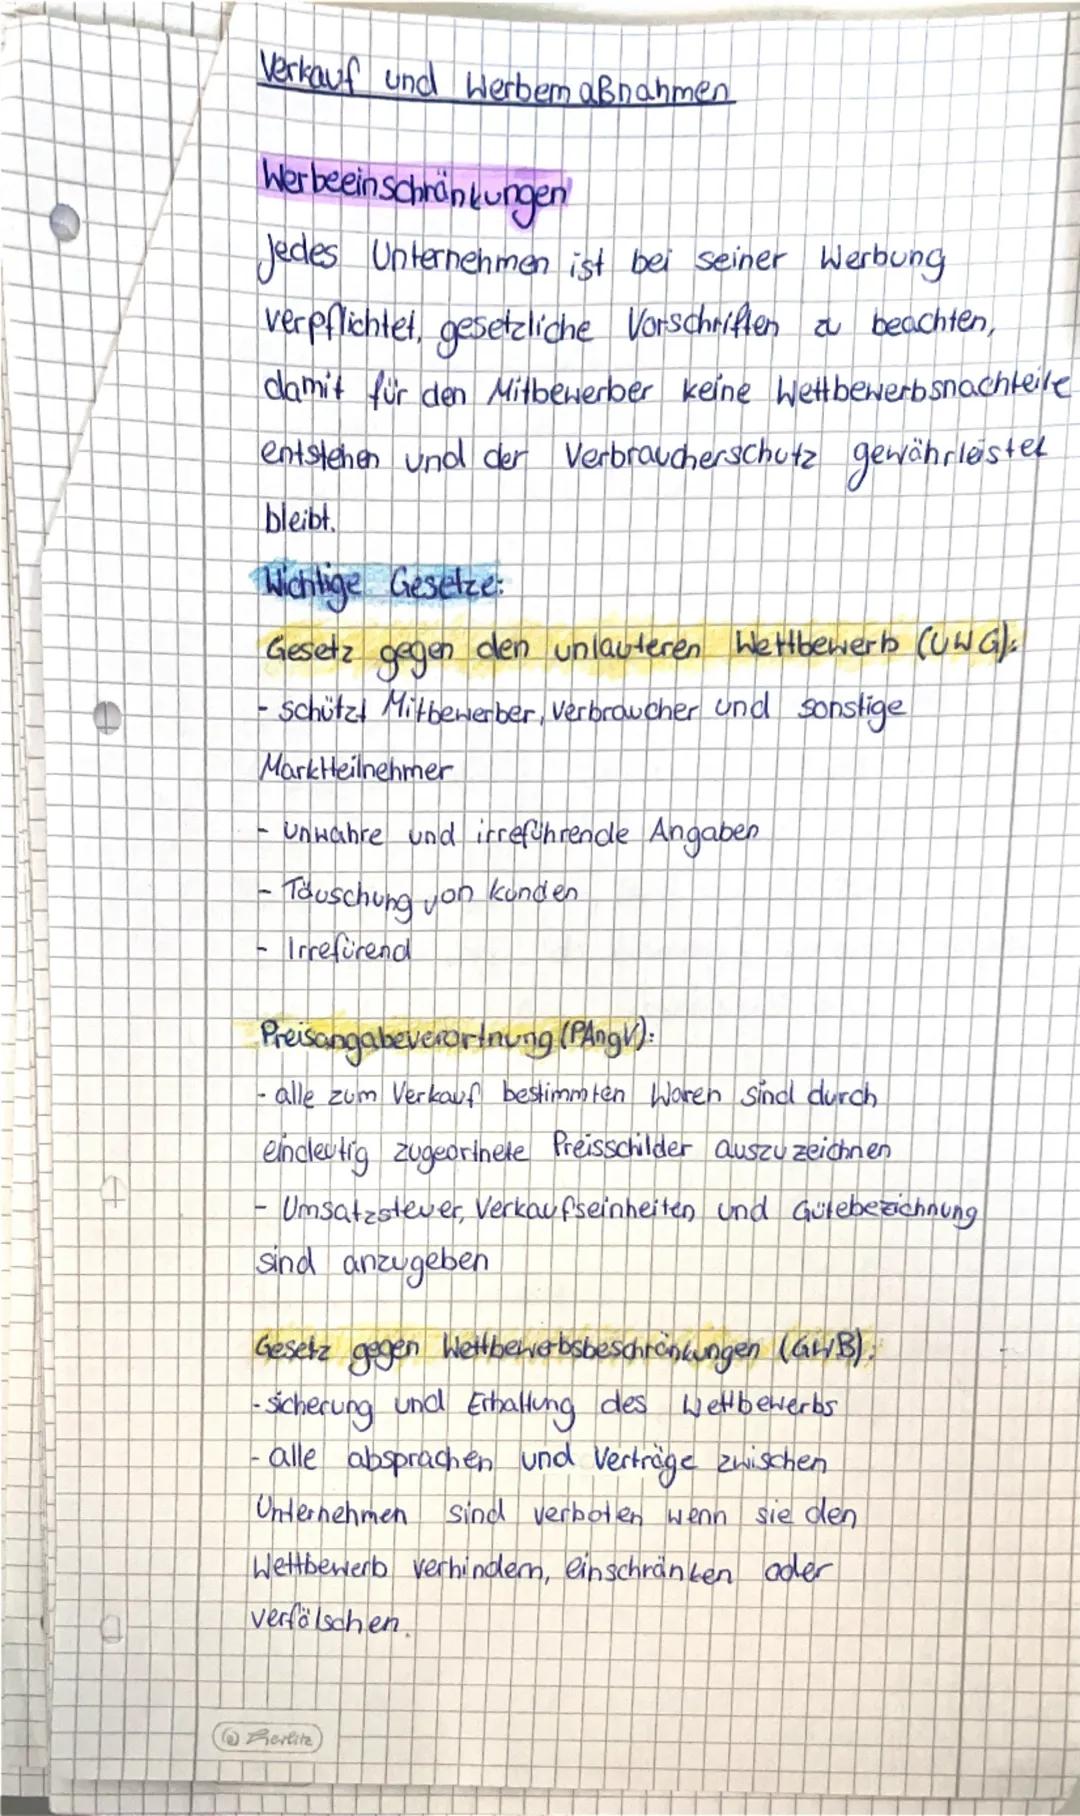 Verkauf und Werbemaßnahmen
Werbeeinschränkungen
Jedes Unternehmen ist bei seiner Werbung
verpflichtet, gesetzliche Vorschriften zu beachten,
damit für den Mitbewerber keine Wettbewerbsnachteile
entstehen und der Verbraucherschutz gewährleistet
bleibt.
Wichtige Gesetze:
Gesetz gegen den unlauteren Wettbewerb (UWG):
- schützt Mitbewerber, Verbraucher und sonstige
Marktteilnehmer
- unwahre und irreführende Angaben
- Täuschung von Kunden
- Irrefürend
Preisangabeverortnung (PAngV):
- alle zum Verkauf bestimmten Waren sind durch
eindeutig zugeortnete Preisschilder auszuzeichnen
- Umsatzsteuer, Verkaufseinheiten und Gütebezichnung
sind anzugeben
Gesetz gegen Wettbewerbsbeschränkungen (GWB):
- sicherung und Erhaltung des Wettbewerbs
- alle absprachen und Verträge zwischen
Unternehmen sind verboten wenn sie den
Wettbewerb verhindern, einschränken oder
verfälschen.
Herlitz